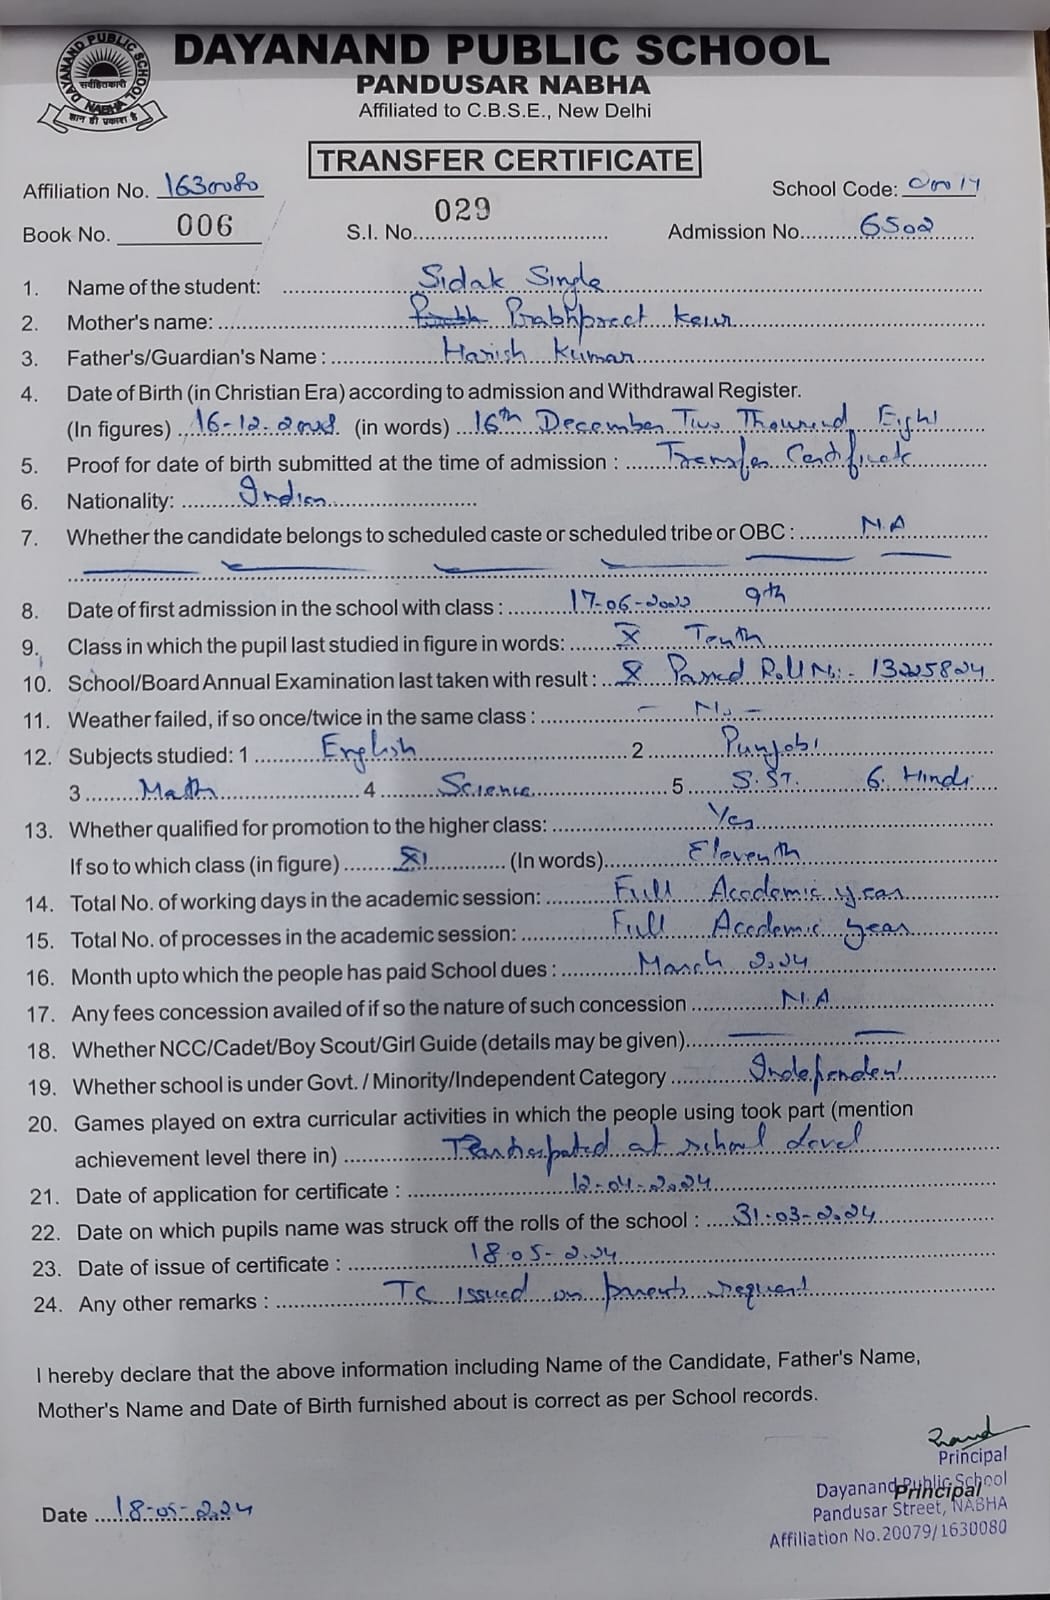 DAYANAND PUBLIC SCHOOL
PANDUSAR NABHA
Affiliated to C.B.S.E., New Delhi
DAYANAND PUBLIC SCHOOL
सर्वहितकारी
NABHA
ज्ञान ही प्रकाश है
TRANSFER CERTIFICATE
Affiliation No. 1630080 School Code:
Book No. 006 S.I. No. 029 Admission No. 6502
1. Name of the student: Sidak Singh
2. Mother's name: Prabhpreet Kaur
3. Father's/Guardian's Name : Harish Kumar
4. Date of Birth (in Christian Era) according to admission and Withdrawal Register.
(In figures) 16-12-2008 (in words) 16th December Two Thousand Eight
5. Proof for date of birth submitted at the time of admission : Transfer Certificate
6. Nationality: Indian
7. Whether the candidate belongs to scheduled caste or scheduled tribe or OBC : N.A
8. Date of first admission in the school with class : 17-06-2022 9th
9. Class in which the pupil last studied in figure in words: X Tenth
10. School/Board Annual Examination last taken with result : X Passed Roll No:- 13225824
11. Weather failed, if so once/twice in the same class : - No -
12. Subjects studied: 1 English 2 Punjabi
3 Math 4 Science 5 S.ST. 6. Hindi
13. Whether qualified for promotion to the higher class: Yes
If so to which class (in figure) XI (In words) Eleventh
14. Total No. of working days in the academic session: Full Academic year
15. Total No. of processes in the academic session: Full Academic year
16. Month upto which the people has paid School dues : March 2024
17. Any fees concession availed of if so the nature of such concession N.A
18. Whether NCC/Cadet/Boy Scout/Girl Guide (details may be given)
19. Whether school is under Govt. / Minority/Independent Category Independent
20. Games played on extra curricular activities in which the people using took part (mention
achievement level there in) Participated at school level
21. Date of application for certificate : 12-04-2024
22. Date on which pupils name was struck off the rolls of the school : 31-03-2024
23. Date of issue of certificate : 18-05-2024
24. Any other remarks : TC issued on parents request
I hereby declare that the above information including Name of the Candidate, Father's Name,
Mother's Name and Date of Birth furnished about is correct as per School records.
Principal
Dayanand Public School
Principal
Pandusar Street, NABHA
Affiliation No.20079/1630080
Date 18-05-2024